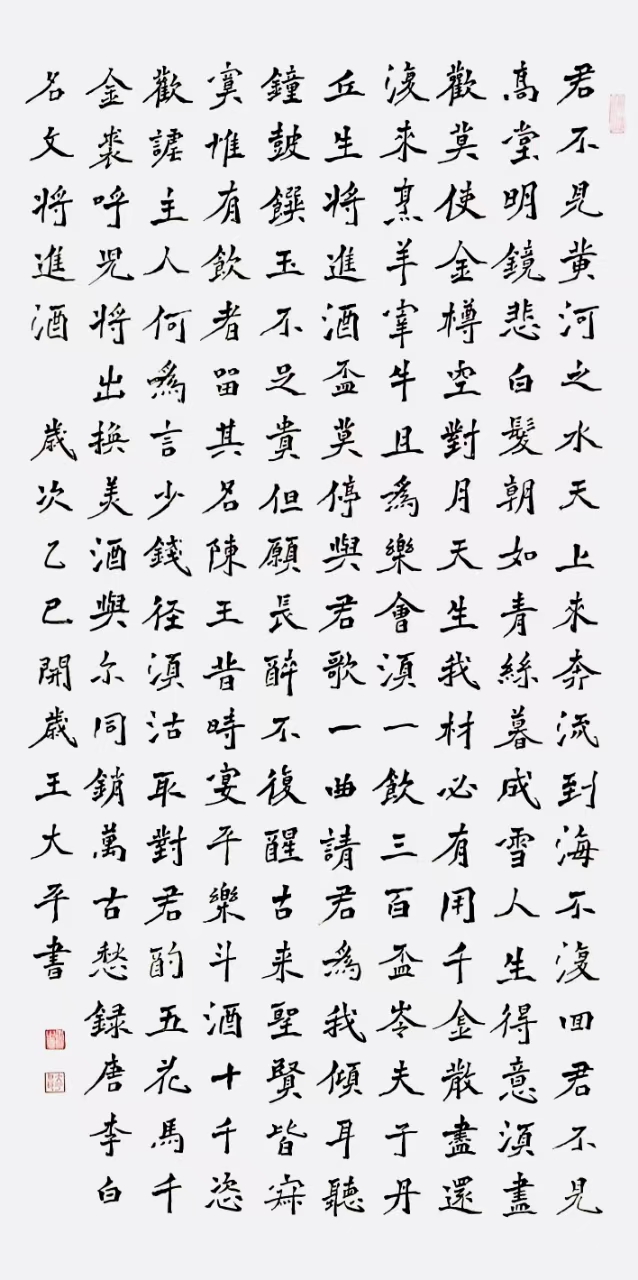 君不見黄河之水天上來奔流到海不復回君不見
高堂明鏡悲白髮朝如青絲暮成雪人生得意須盡
歡莫使金樽空對月天生我材必有用千金散盡還
復來烹羊宰牛且為樂會須一飲三百盃岑夫子丹
丘生將進酒盃莫停與君歌一曲請君為我傾耳聽
鐘鼓饌玉不足貴但願長醉不復醒古来聖賢皆寂
寞惟有飲者留其名陳王昔時宴平樂斗酒十千恣
歡謔主人何為言少錢径須沽取對君酌五花馬千
金裘呼兒將出換美酒與尔同銷萬古愁録唐李白
名文將進酒 歲次乙巳開歲王大平書